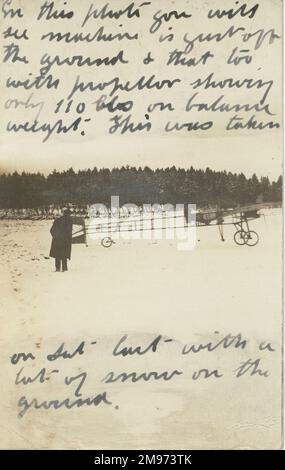 In this photo you will
see machine is just off
the ground & that too
with propellor showing
only 110 lbs on balance
weight. This was taken
on Sat last with a
lot of snow on the
ground.
alamy
Image ID: 2M973TK
www.alamy.com